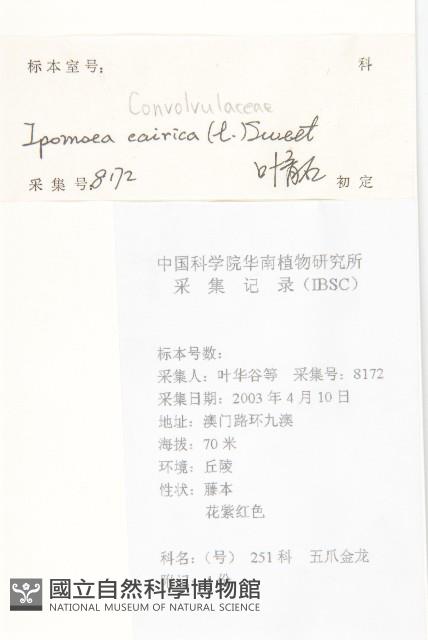 标本室号: 科
Convolvulaceae
Ipomoea cairica (L.) Sweet
采集号 8172 初定
中国科学院华南植物研究所
采集记录(IBSC)
标本号数:
采集人: 叶华谷等 采集号: 8172
采集日期: 2003 年 4 月 10 日
地址: 澳门路环九澳
海拔: 70 米
环境: 丘陵
性状: 藤本
花紫红色
科名: (号) 251 科 五爪金龙
國立自然科學博物館
NATIONAL MUSEUM OF NATURAL SCIENCE